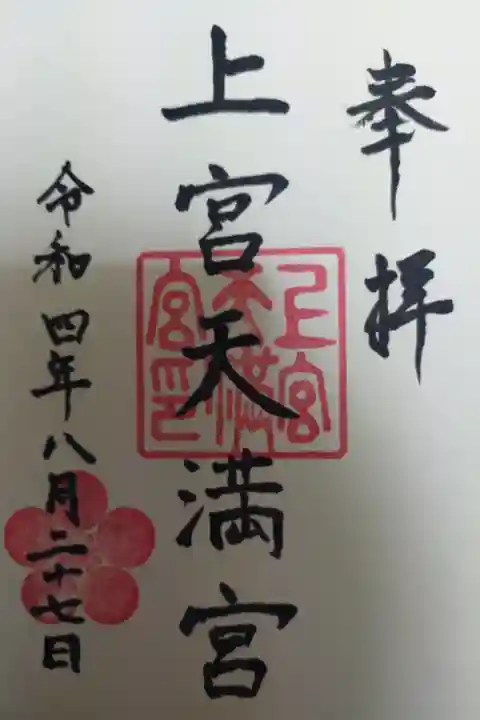 奉拝
上宮天満宮
上宮天満宮印
令和四年八月二十七日